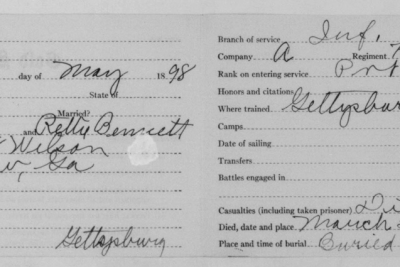 day of May 1898
State of
Married?
and Rettie Bennett
Wilson
Ga
Gettysburg
Branch of service Inf.
Company A Regiment
Rank on entering service Pvt
Honors and citations
Where trained Gettysbur
Camps
Date of sailing
Transfers
Battles engaged in
Casualties (including taken prisoner) Di
Died, date and place March
Place and time of burial Buried